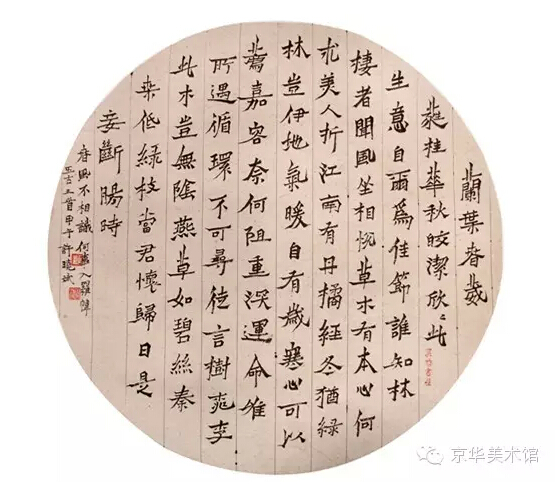 蘭葉春葳
蕤桂華秋皎潔欣〻此
生意自爾為佳節誰知林
棲者聞風坐相悅草木有本心何
求美人折江南有丹橘經冬猶綠
林豈伊地氣暖自有歲寒心可以
薦嘉客奈何阻重深運命惟
所遇循環不可尋徒言樹桃李
此木豈無陰燕草如碧絲秦
桑低綠枝當君懷歸日是
妾斷腸時
春風不相識何事入羅幃
五古三首甲午許曉斌
京华美术馆